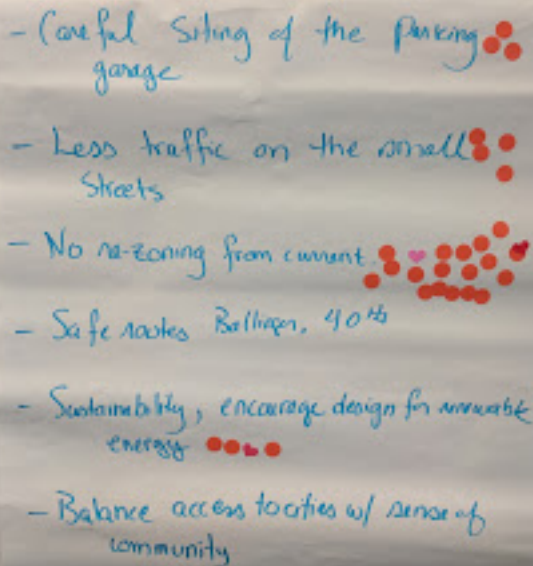 - Careful Siting of the Parking
garage
- Less traffic on the small
Streets
- No re-zoning from current
- Safe routes Ballinger, 40th
- Sustainability, encourage design for renewable
energy
- Balance access to cities w/ sense of
community